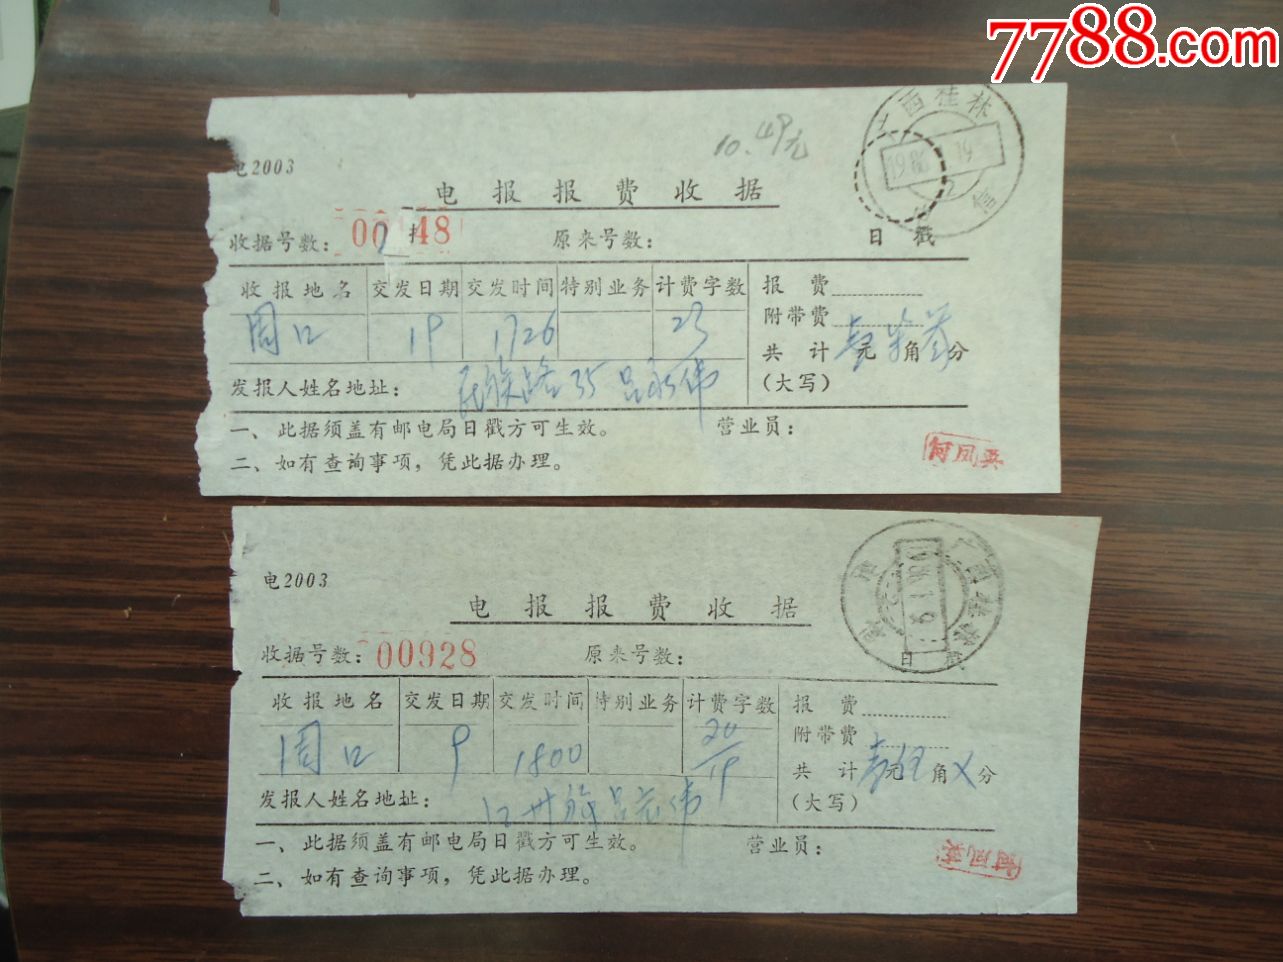 7788.com
广西桂林
10.49元
电2003
电报报费收据
收据号数：
48
原来号数：
日戳
收报地名 交发日期 交发时间 特别业务 计费字数 报费
周口 19 1726 23 附带费
共计 元 角 分
发报人姓名地址： 民族路35 吕永伟 (大写)
一、此据须盖有邮电局日戳方可生效。 营业员：
何凤英
二、如有查询事项，凭此据办理。
广西桂林
电2003
电报报费收据
收据号数：00928 原来号数：
日戳
收报地名 交发日期 交发时间 特别业务 计费字数 报费
周口 9 1800 20/19 附带费
共计 元 角 分
发报人姓名地址： (大写)
一、此据须盖有邮电局日戳方可生效。 营业员：
何凤英
二、如有查询事项，凭此据办理。